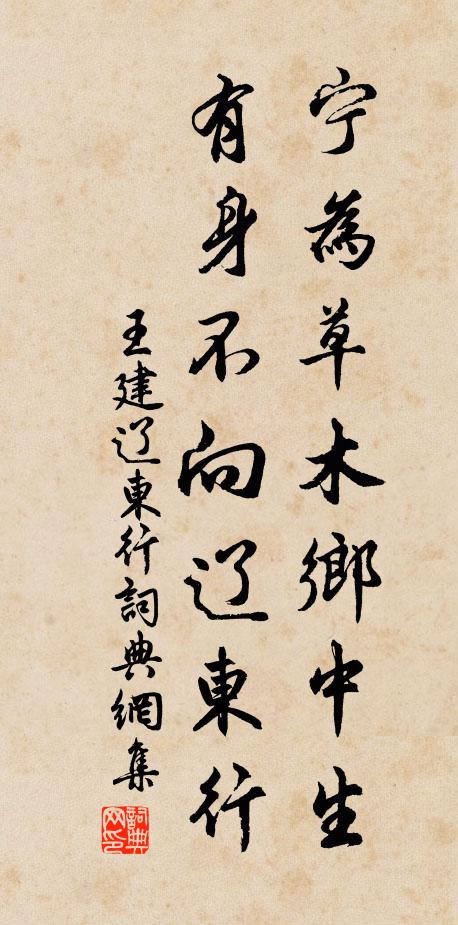 宁為草木鄉中生
有身不向辽東行
王建辽東行詞典網集
詞典网印